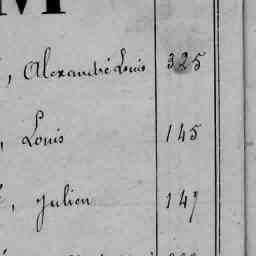 M
, Alexandre Louis 325
, Louis 145
, Julien 147